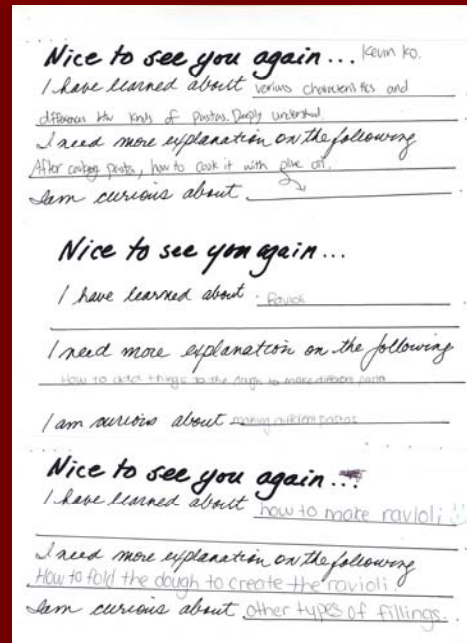 Nice to see you again... Kevin Ko.
I have learned about various characteristics and
differences btw kinds of pastas. Deeply understand.
I need more explanation on the following
After cooking pasta, how to cook it with olive oil.
I am curious about
Nice to see you again...
I have learned about Ravioli
I need more explanation on the following
How to add things to the dough to make different pasta
I am curious about making different pastas
Nice to see you again...
I have learned about how to make ravioli
I need more explanation on the following
How to fold the dough to create the ravioli.
I am curious about other types of fillings.